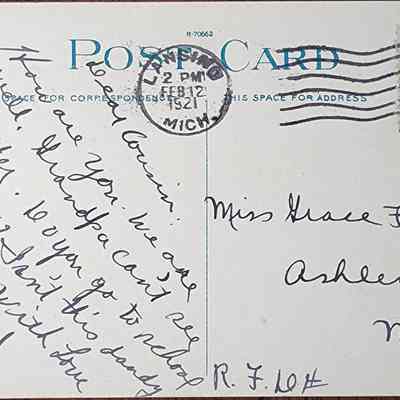 R-70663
POST CARD
LANSING
2 PM
FEB 12
1921
MICH.
SPACE FOR CORRESPONDENCE
THIS SPACE FOR ADDRESS
Dear Cousin:
How are you. We are
well. Grandpa can't see
Do you go to school
Isn't this dandy
with Love
Miss Grace F
Ashley
R. F. D #